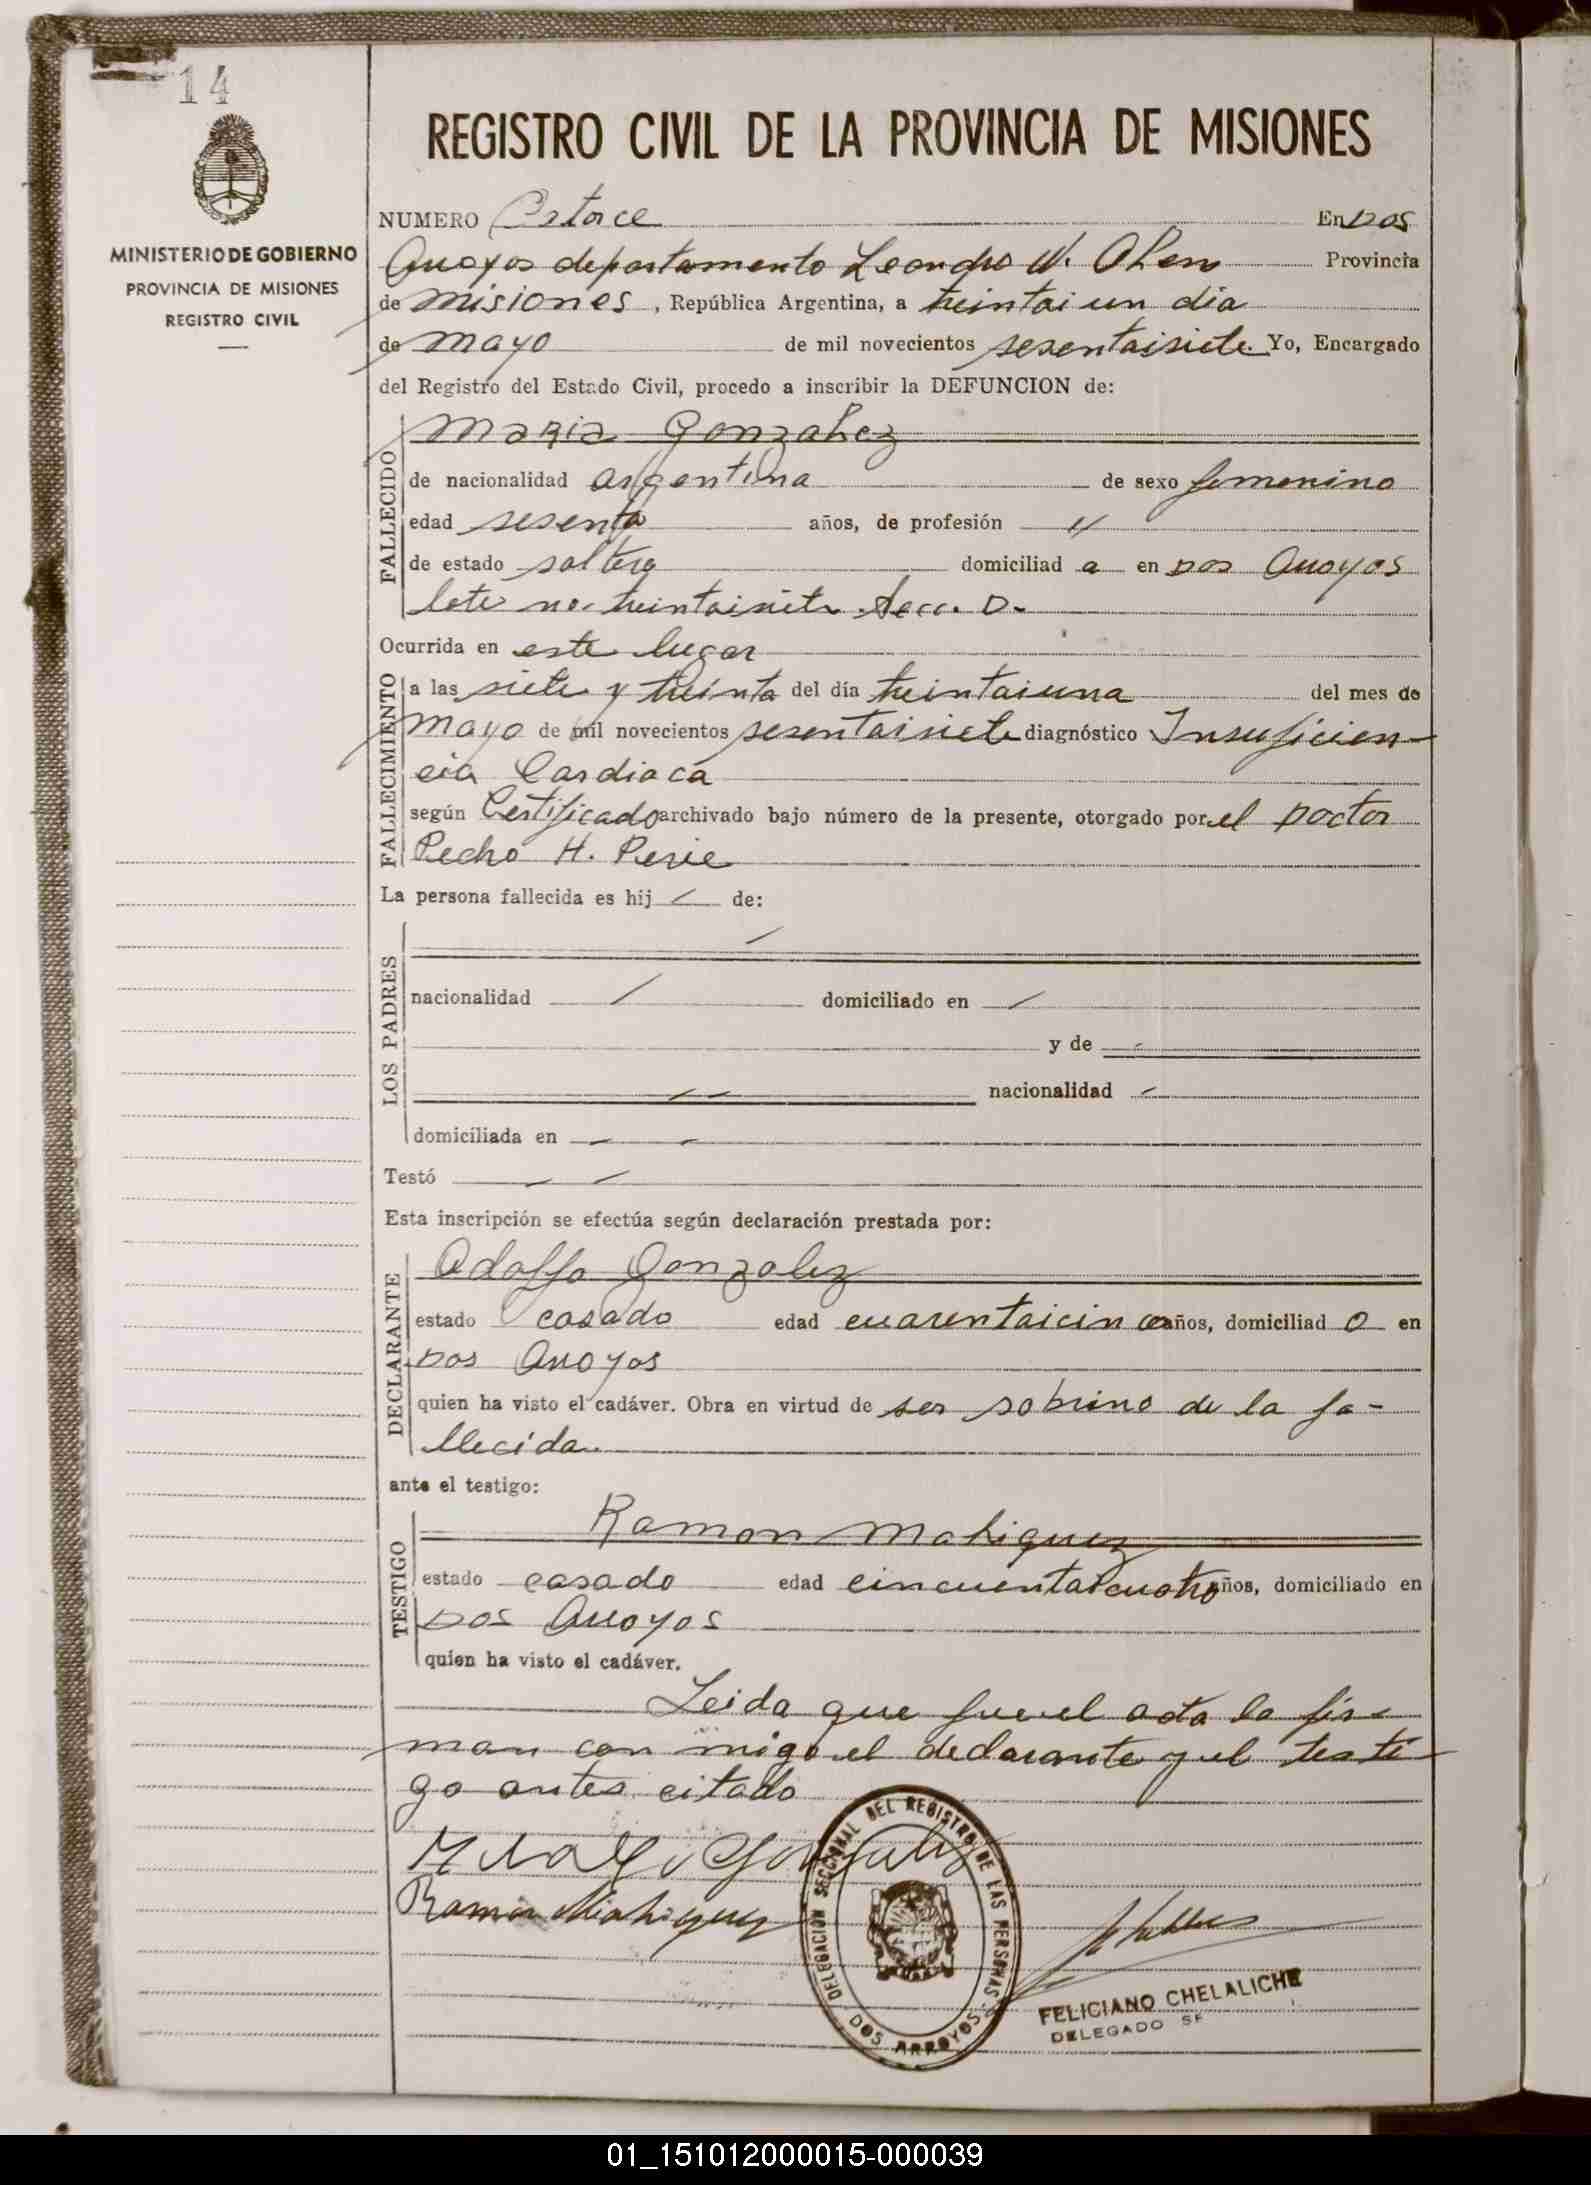 14
MINISTERIO DE GOBIERNO
PROVINCIA DE MISIONES
REGISTRO CIVIL
REGISTRO CIVIL DE LA PROVINCIA DE MISIONES
NUMERO Catorce En Dos
Arroyos departamento Leandro N. Alem Provincia
de Misiones, República Argentina, a treintai un dia
de mayo de mil novecientos sesentaisiete Yo, Encargado
del Registro del Estado Civil, procedo a inscribir la DEFUNCION de:
FALLECIDO
Maria Gonzalez
de nacionalidad argentina de sexo femenino
edad sesenta años, de profesión "
de estado soltera domiciliad a en Dos Arroyos
lote no. treintaisiete Secc. D.
Ocurrida en este lugar
FALLECIMIENTO
a las siete y treinta del día treintaiuna del mes de
Mayo de mil novecientos sesentaisiete diagnóstico Insuficien-
cia Cardiaca
según Certificado archivado bajo número de la presente, otorgado por el Doctor
Pedro H. Perie
La persona fallecida es hij de:
LOS PADRES
nacionalidad domiciliado en
y de
nacionalidad
domiciliada en
Testó
Esta inscripción se efectúa según declaración prestada por:
DECLARANTE
Adolfo Gonzalez
estado casado edad cuarentaicinco años, domiciliad o en
Dos Arroyos
quien ha visto el cadáver. Obra en virtud de ser sobrino de la fa-
llecida.
ante el testigo:
TESTIGO
Ramon Mahiquez
estado casado edad cincuentaicuatro años, domiciliado en
Dos Arroyos
quien ha visto el cadáver.
Leida que fue el acta la fir-
man con migo el declarante y el testi-
go antes citado
Gonzalez
Ramon Mahiquez
DELEGACION SECCIONAL DEL REGISTRO DE LAS PERSONAS
DOS ARROYOS
FELICIANO CHELALICHE
DELEGADO
01_151012000015-000039